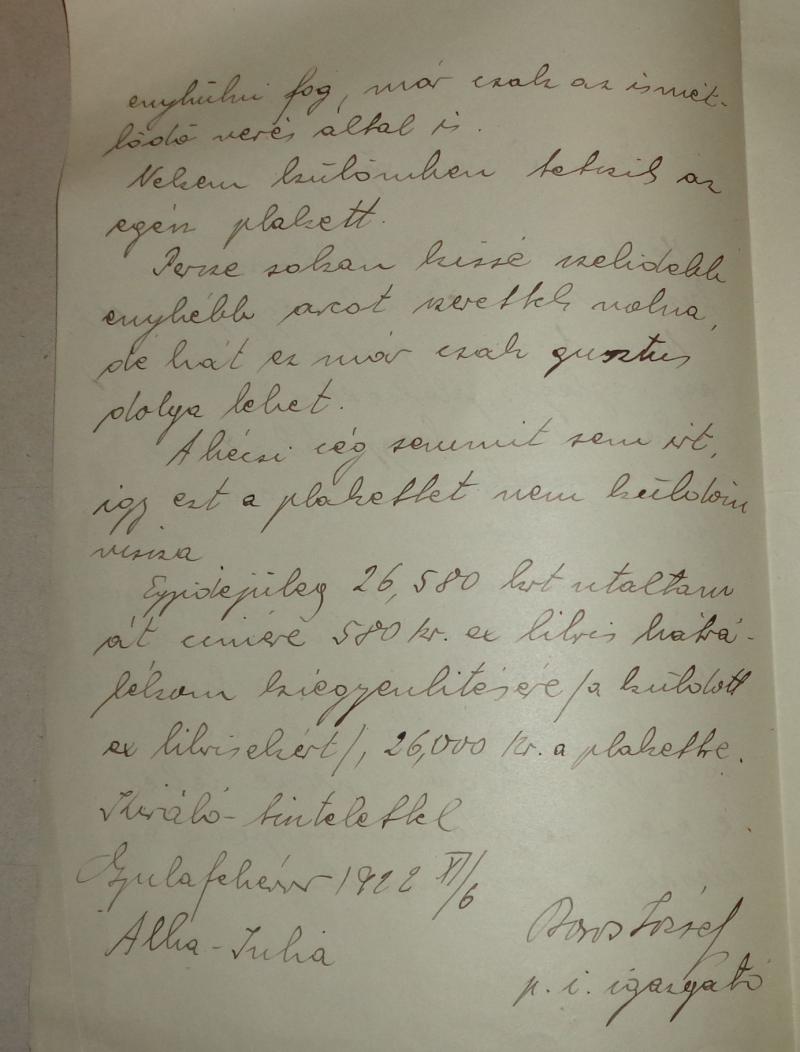 enyhülni fog, már csak az ismét-
lődő verés által is.
Nekem külömben tetszik az
egész plakett.
Persze sokan kissé szelidebb
enyhébb arcot szerettek volna,
de hát ez már csak gusztus
dolga lehet.
A bécsi cég semmit sem irt,
igy ezt a plakettet nem küldöm
vissza
Egyidejüleg 26,580 krt utaltam
át cimére 580 kr. ex libris hátrá-
lékom kiegyenlitésére /a küldött
ex librisekért/, 26,000 Kr. a plakettre.
Kiváló tisztelettel
Gyulafehérvár 1922 XI/6
Alba-Iulia
Boros József
p. i. igazgató